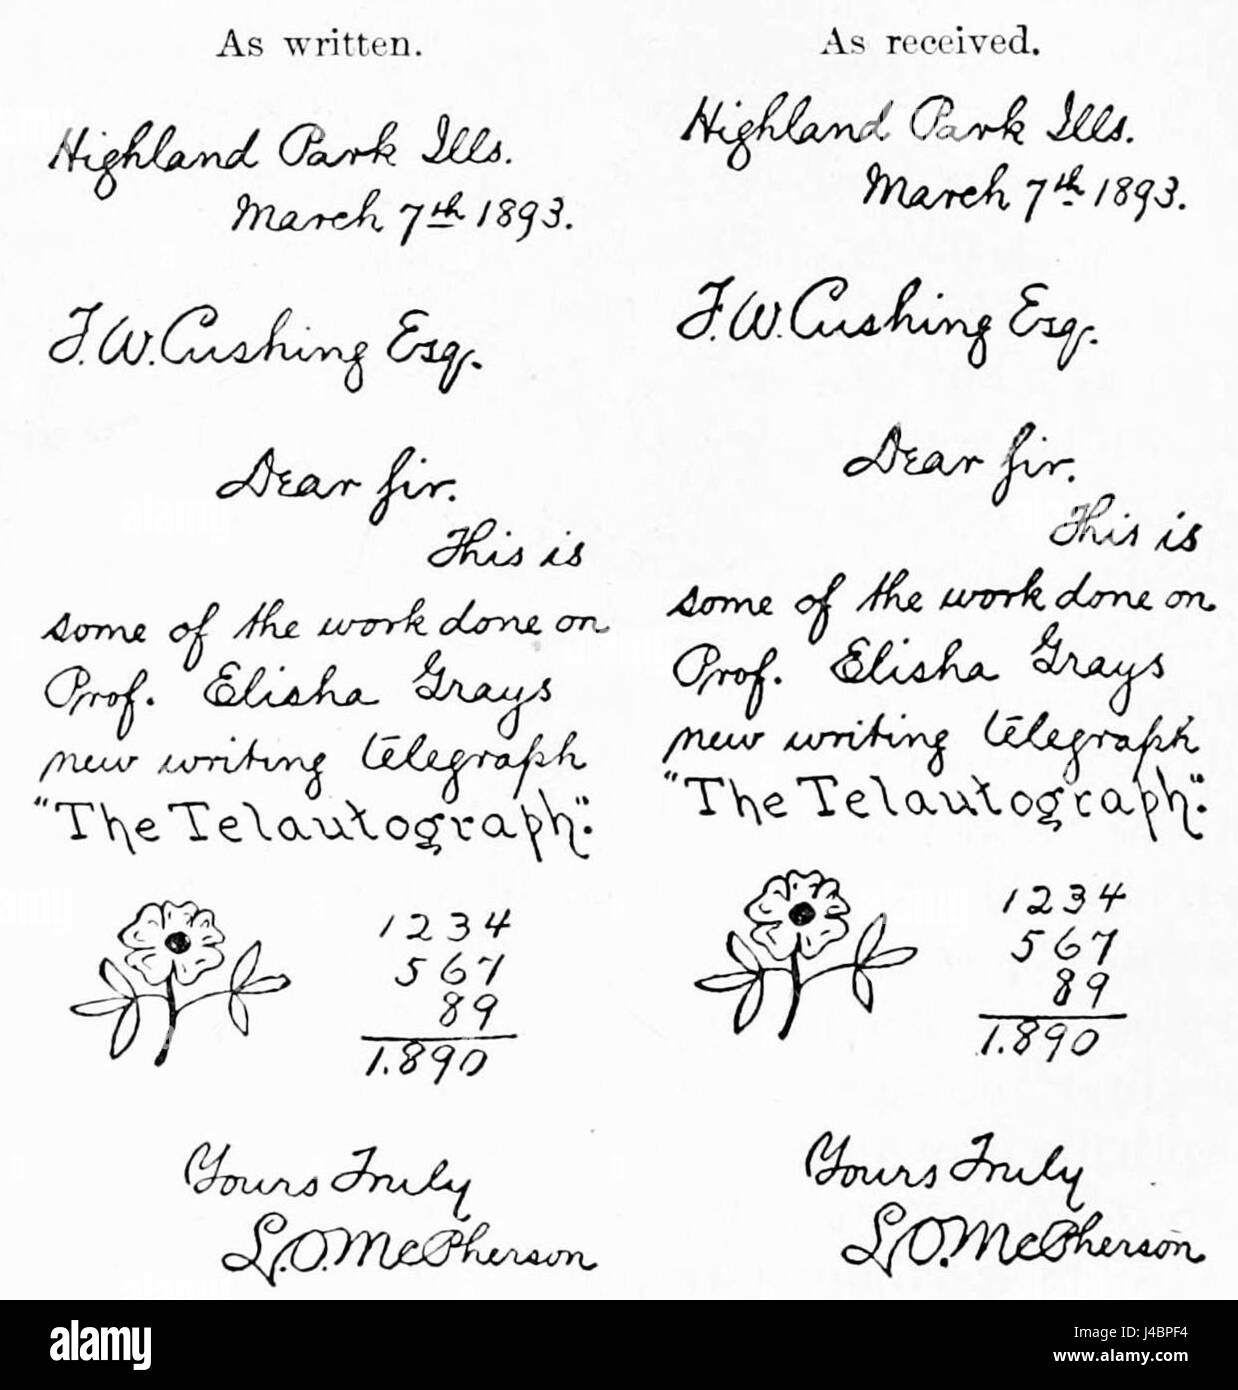 As written.
Highland Park Ills.
March 7th 1893.
F. W. Cushing Esq.
Dear Sir.
This is
some of the work done on
Prof. Elisha Grays
new writing telegraph
"The Telautograph".
1234
567
89
1.890
Yours Truly
L. O. McPherson
As received.
Highland Park Ills.
March 7th 1893.
F. W. Cushing Esq.
Dear Sir.
This is
some of the work done on
Prof. Elisha Grays
new writing telegraph
"The Telautograph".
1234
567
89
1.890
Yours Truly
L. O. McPherson
alamy
Image ID: J4BPF4
www.alamy.com